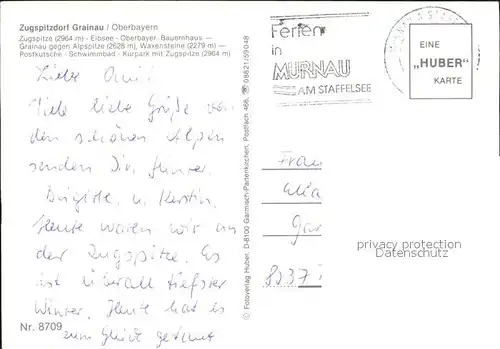 Zugspitzdorf Grainau / Oberbayern
Zugspitze (2964 m) - Eibsee - Oberbayer. Bauernhaus —
Grainau gegen Alpspitze (2628 m), Waxensteine (2279 m) —
Postkutsche - Schwimmbad - Kurpark mit Zugspitze (2964 m)
Liebe Omi!
Viele liebe Grüße von
den schönen Alpen
senden Dir
Brigitte u. Kerstin.
Heute waren wir an
der Zugspitze. Es
ist überall tiefster
Winter. Heute hat es
zum Glück getaut
Nr. 8709
© Fotoverlag Huber, D-8100 Garmisch-Partenkirchen, Postfach 466, ☎ 08821/59048
Ferien
in
MURNAU
AM STAFFELSEE
EINE
„HUBER"
KARTE
Frau
Gar
8237
privacy protection
Datenschutz